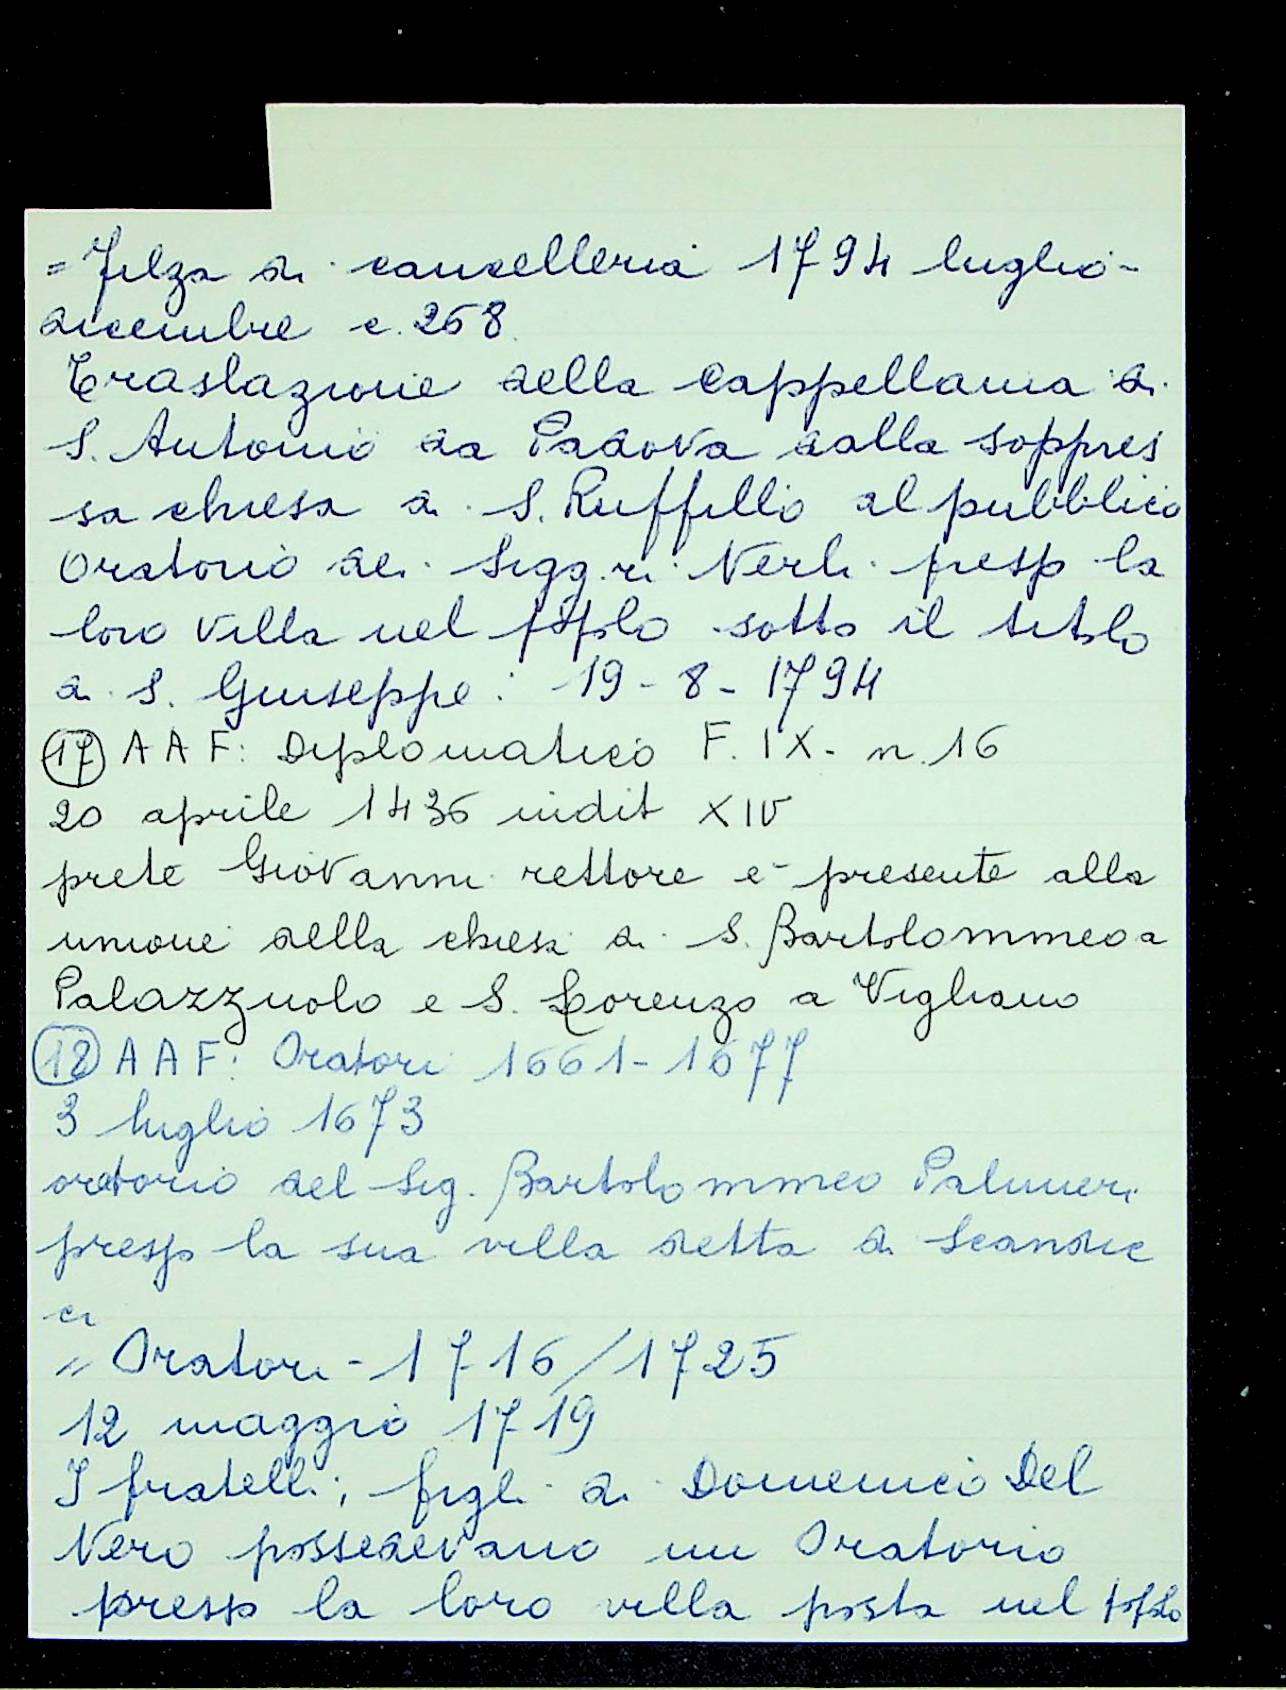 = Filza di cancelleria 1794 luglio-
dicembre c. 268.
Traslazione della Cappellania di
S. Antonio da Padova dalla soppres
sa chiesa di S. Ruffillo al pubblico
Oratorio dei Sigg.ri Nerli presso la
loro Villa nel popolo sotto il titolo
di S. Giuseppe: 19-8-1794
17 AAF: Diplomatico F. IX. n. 16
20 aprile 1436 indit XIV
prete Giovanni rettore è presente alla
unione della chiesa di S. Bartolommeo a
Palazzuolo e S. Lorenzo a Vigliano
18 AAF: Oratori 1661-1677
3 luglio 1673
oratorio del Sig. Bartolommeo Palmieri
presso la sua villa detta di Scandic
ci
" Oratori - 1716/1725
12 maggio 1719
I fratelli, figli di Domenico Del
Nero possedevano un Oratorio
presso la loro villa posta nel popolo